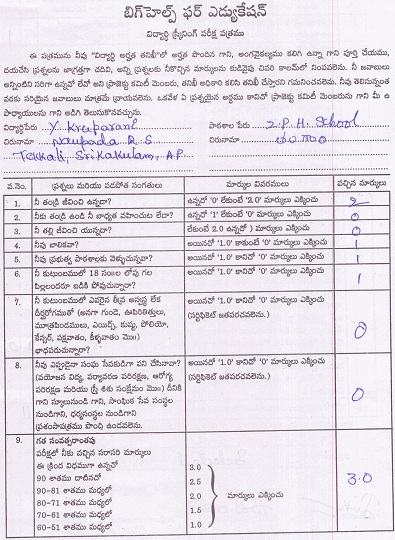 బిగ్‌హెల్ప్ ఫర్ ఎడ్యుకేషన్
విద్యార్థి స్క్రీనింగ్ పరీక్ష పత్రము
ఈ పత్రమును నీవు "విద్యార్థి అర్హత తనిఖీ"లో అర్హత పొందిన గాని, అంగవైకల్యము కలిగి ఉన్నా గాని పూర్తి చేయుము,
దయచేసి ప్రశ్నలను జాగ్రత్తగా చదివి, అన్ని ప్రశ్నలకు నీకొచ్చిన మార్కులను కుడివైపు చివరి కాలమ్‌లో నింపవలెను. నీ జవాబులు
అన్నింటిని సరిగా ఉన్నదో లేదో అని ప్రాజెక్టు కమిటీ మెంబరు, తనిఖీ అధికారి కలిసి తనిఖీ చేస్తారని గమనించవలెను. నీవు తెలిసినన్తంత
వరకు సరియైన జవాబులు మాత్రమే వ్రాయవలెను. ఒకవేళ ఏ ప్రశ్నయైన అర్థము కానిచో ప్రాజెక్టు కమిటీ మెంబరును గాని మీ ఉ
పాధ్యాయులను గాని అడిగి తెలుసుకొనవచ్చును.
విద్యార్థిపేరు Y. Kruparani పాఠశాల పేరు Z.P.H. School
చిరునామా Naupada R.S చిరునామా
Tekkali, Srikakulam, A.P.
వ.నెం. ప్రశ్నలు మరియు పడపోత సంగతులు మార్కుల వివరములు వచ్చిన మార్కులు
1. నీ తండ్రి జీవించి ఉన్నడా? ఉన్నచో '0' లేకుంటే '2.0' మార్కులు ఎక్కించు 2
2. నీకు తండ్రి ఉండి నీ బాధ్యత వహించుట లేదా? ఉన్నచో '1' లేకుంటే '0' మార్కులు ఎక్కించు 0
3. నీ తల్లి జీవించి యున్నదా? లేకుంటే 2.0 ఉన్నచో ) మార్కులు ఎక్కించు 0
4. నీవు బాలికవా? అయినచో '1.0' కాకుంటే '0' మార్కులు ఎక్కించు 1
5. నీవు ప్రభుత్వ పాఠశాలకు వెళ్ళుచున్నవా? అయినచో '1.0' కానిచో '0' మార్కులు ఎక్కించు 1
6. నీ కుటుంబములో 18 సం॥ల లోపు గల అయినచో '1.0' కానిచో '0' మార్కులు ఎక్కించు 1
పిల్లలందరూ బడికి పోవుచున్నారా?
7. నీ కుటుంబములో ఎవరైన తీవ్ర అస్వస్థ లేక అయినచో '1.0' కానిచో '0' మార్కులు ఎక్కించు 0
దీర్ఘరోగముతో (అనగా గుండె, ఊపిరితిత్తులు, (సర్టిఫికెట్ జతపరచవలెను.)
మూత్రపిండములు, ఎయిడ్స్, కుష్ఠు, పోలియో,
కేన్సర్, పక్షవాతం, కీళ్ళవాతం మొ॥)
బాధపడుచున్నారా?
8. నీవు ఎప్పుడైనా సంఘ సేవకుడిగా పని చేసినావా? అయినచో '1.0' కానిచో '0' మార్కులు ఎక్కించు 0
(వయోజన విద్య, పర్యావరణ పరిరక్షణ, ఆరోగ్య (సర్టిఫికెట్ జతపరచవలెను.)
పరిరక్షణ మరియు స్త్రీ శిశు సంక్షేమం మొ॥) దీనికి
గాని స్కూలునుండి గాని, సాంఘిక సేవ సంస్థల
నుండిగాని, ధర్మసంస్థల నుండిగాని
ప్రశంసాపత్రము పొంది ఉండవలెను.
9. గత సంవత్సరాంతపు
పరీక్షలో నీకు వచ్చిన సరాసరి మార్కులు
ఈ క్రింద విధముగా ఉన్నచో 3.0
90 శాతము దాటినచో 2.5
90-81 శాతము మధ్యలో 2.0 మార్కులు ఎక్కించు 3.0
80-71 శాతము మధ్యలో 1.5
70-61 శాతము మధ్యలో 1.0
60-51 శాతము మధ్యలో